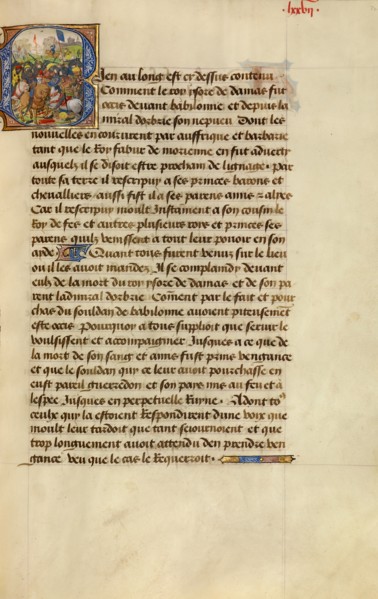 lxxvii
Bien au long est cy dessus contenu
Comment le roy ysore de damas fut
occis deuant babylonne et depuis la
miral dorbrie son nepueu Dont les
nouuelles en coururent par auffrique et barbarie
tant que le Roy fabur de morienne en fut aduerty
ausquelz il se disoit estre prochain de lignage. par
toute sa terre il rescripuy a ses princes barons et
cheualliers aussi fist il a ses parens amis et aliez
Car il rescripuy moult Instament a son cousin le
Roy de fes et autres plusieurs roys et princes ses
parens quilz venissent a tout leur pouoir en son
ayde Quant tous furent venus sur le lieu
ou il les auoit mandez Il se complaindy deuant
eulz de la mort du roy ysore de damas et de son pa
rent ladmiral dorbrie Cõment par le fait et pour
chas du souldan de babylonne auoient piteusement
este occis Pourquoy a tous supplioit que seruir le
voulsissent et accompaignier Jusques a ce que de
la mort de son sang et amis fust prinse vengance
et que le souldan quy ce leur auoit pourchasse en
eust pareil guerredon et son pays mis au feu et a
lespee Jusques en perpetuelle Ruyne. Adont to⁹
ceulx quy la estoient Respondirent dune voix que
moult leur tardoit que tant seiournoient et que
trop longuement auoit attendu den prendre ven
gance veu que le cas le Requeroit.